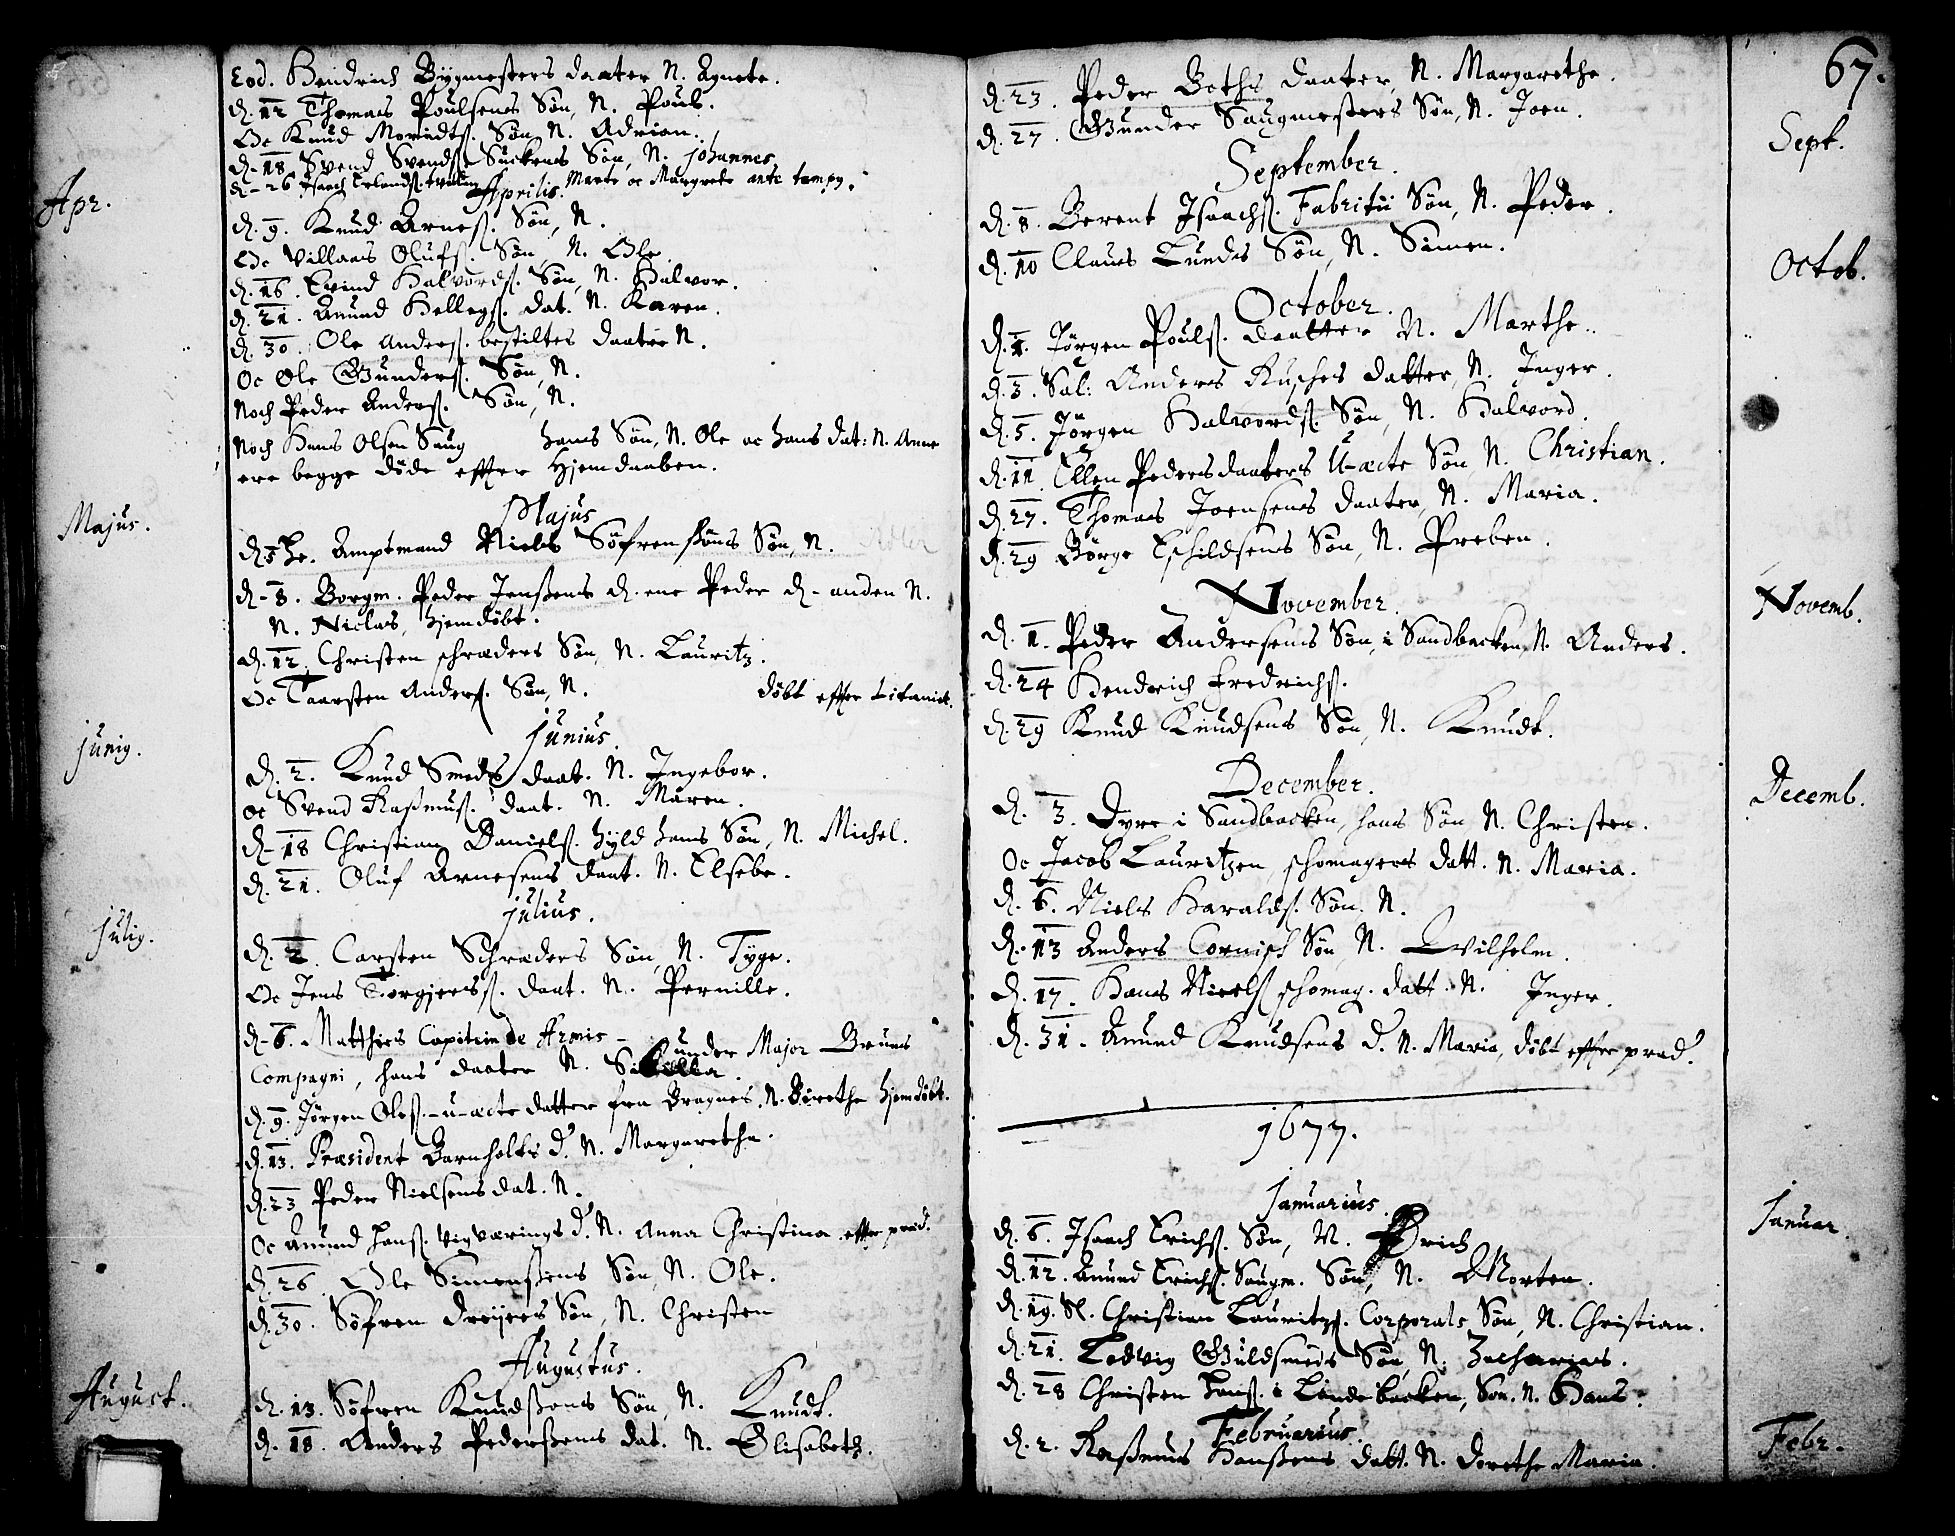 Eod. Hendrich Bygmesters daater N. Agnete.
d. 12 Thomas Poulsens Søn, N. Poul.
Oc Knud Søn, N. Adrian.
d. 18 Svend Svends. Suckens Søn, N. Johannes.
d. 26 Isaach Erlands. Marte oc Margrete ante temp9.
Aprilis.
Apr.
d. 9. Knud Arnes. Søn, N.
Oc Villans Olufs. Søn, N. Ole.
d. 16. Evind Halvords. Søn, N. Halvor.
d. 21. Anund Hellegs. dat. N. Karen.
d. 30. Ole Anders. bestiltes daater N.
Oc Ole Gunders. Søn, N.
Noch Peder Anders. Søn, N.
Noch Hans Olsen Saug hans Søn, N. Ole oc hans dat: N. Anne
ere begge døde effter Hjemdaaben.
Majus
Majus.
d. 5 He. Amptmand Niels Søfrensøns Søn, N. Adler
d. 8. Borgm. Peder Jenssens d. ene Peder d. anden N.
N. Niclas, hjemdøbt.
d. 12. Christen schræders Søn, N. Lauritz.
Oc Taarsten Anders. Søn, N. døbt effter Litaniet.
Junius.
junig.
d. 2. Knud Smeds daat. N. Ingebor.
oc Svend Rasmus. daat. N. Maren.
d. 18 Christian Daniels. Hyld hans Søn, N. Michel.
d. 21. Oluf Arnesens daat. N. Elsebe.
julius.
julig.
d. 2. Carsten Schræders Søn, N. Tyge.
Oc Jens Torgjers. daat. N. Pernille.
d. 6. Matthies Capitein de Armis - under Major Bruns
Compagni, hans daater N. Sibilla.
d. 9. Jørgen Oles. u-æcte datter fra Bragnes, N. Dorethe hjemdøbt.
d. 13. Præsident Barnholts D. N. Margaretha.
d. 23 Peder Nielsens dat. N.
Oc Anund Hans. Vigværings D. N. Anna Christina effter præd.
d. 26. Ole Simenssens Søn, N. Ole.
d. 30. Søfren Dreijers Søn, N. Christen
Augustus.
August.
d. 13. Søfren Knudssens Søn, N. Knudt.
d. 18. Anders Pederssens dat. N. Elisabeth.
67.
d. 23. Peder Boths daater, N. Margarethe.
d. 27. Gunder Saugmesters Søn, N. Joen.
September.
Sept.
d. 8. Berent Isaachs. Fabritii Søn, N. Peder.
d. 10 Claus Lunds Søn, N. Simen.
Octob.
October.
d. 1. Jørgen Pouls. Daatter N. Marthe.
d. 3. Sal: Anders Rusches datter, N. Inger.
d. 5. Jørgen Halvords. Søn, N. Halvord.
d. 11. Ellen Pedersdaaters U-æcte Søn, N. Christian.
d. 27. Thomas Joensens daater, N. Maria.
d. 29 Børge Eschildsens Søn, N. Preben.
November.
Novemb.
d. 1. Peder Andersens Søn, i Sandbacken, N. Anders.
d. 24 Hendrich Fredrichs.
d. 29 Knud Knudsens Søn, N. Knudt.
December.
Decemb.
d. 3. Dyre i Sandbacken, hans Søn N. Christen.
Oc Jacob Lauritzen, schomagers datt. N. Maria.
d. 6. Niels Haralds. Søn, N.
d. 13 Anders Cornisch Søn, N. Wilhelm.
d. 17. Hans Niels schomag. datt. N. Inger.
d. 31. Anund Knudsens D. N. Maria, døbt effter præd.
1677.
Januarius.
Januar.
d. 6. Isaach Erichs. Søn, N. Erich
d. 12. Anund Erichs. Saugm. Søn, N. Morten.
d. 19. Sl. Christian Lauritzs. Corporals Søn, N. Christian.
d. 21. Lodvig Guldsmeds Søn, N. Zacharias.
d. 28 Christen Hans. i Lindebacken, Søn. N. Hans.
Februarius.
Febr.
d. 2. Rasmus Hanssens datt. N. Dorethe Maria.